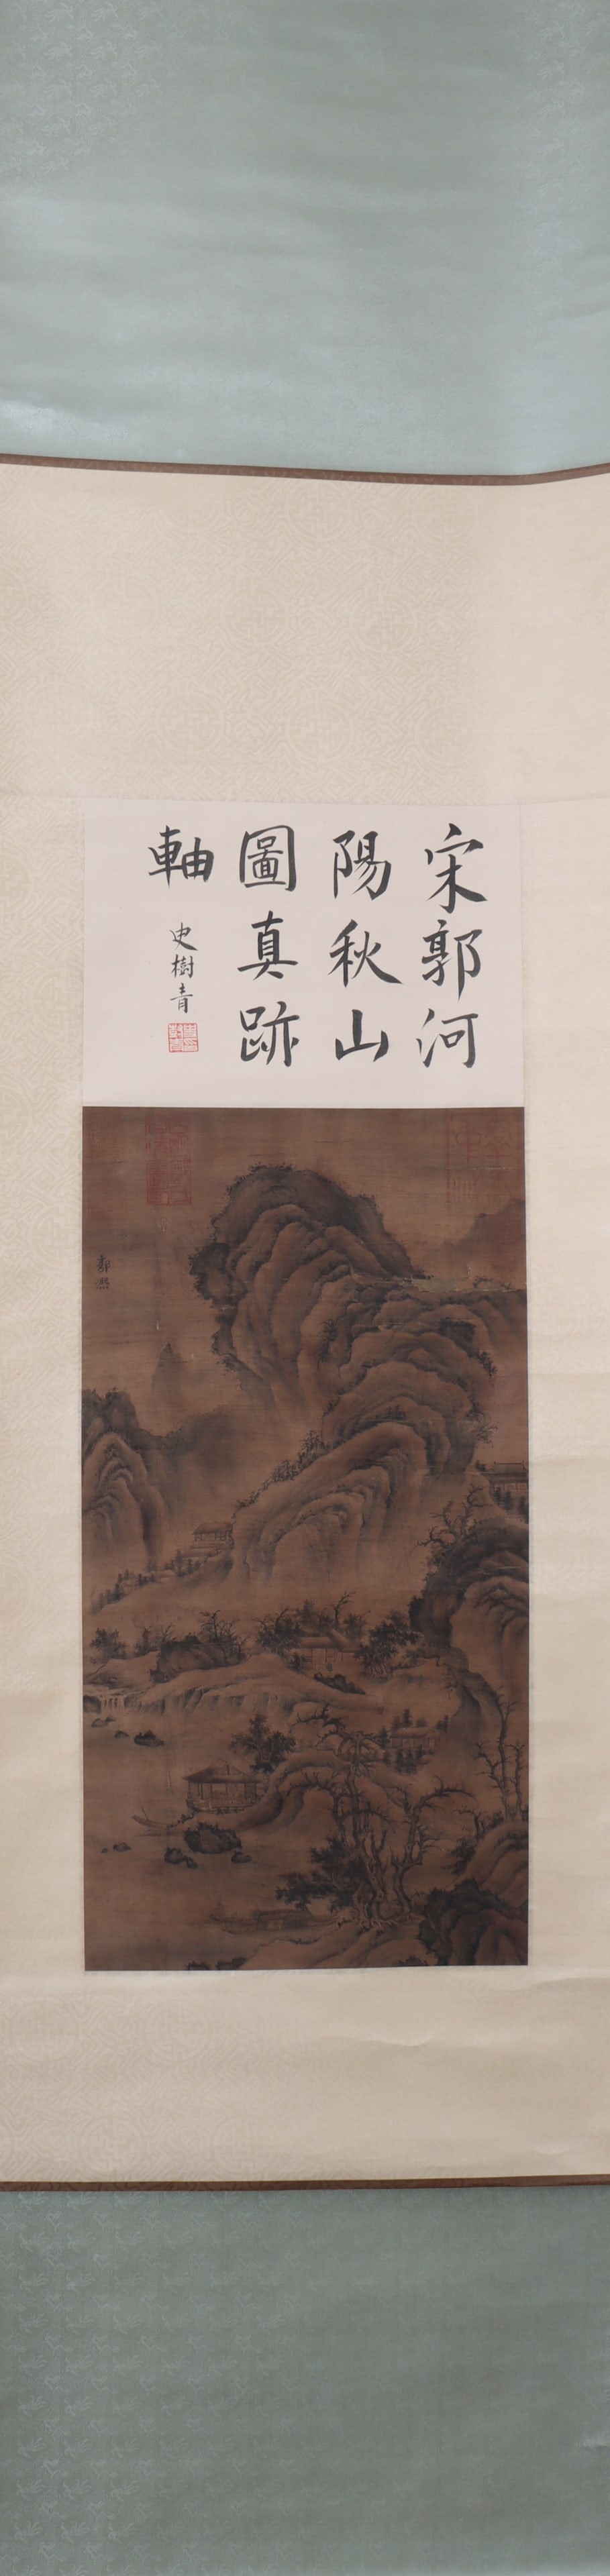 宋郭河
陽秋山
圖真跡
軸
史樹青
郭熙